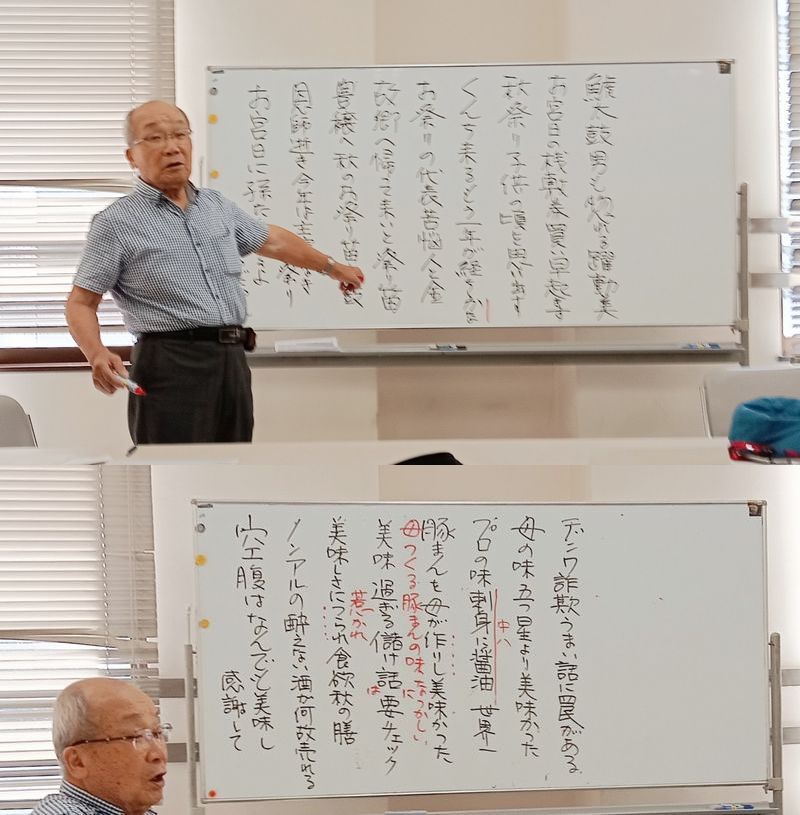 太鼓男も惚れる躍動美
お宮日の桟敷席買い早起き
秋祭り子供の頃を思い出す
くんち来るどう一年が経つ
お祭りの代表苦悩人と金
故郷へ帰って来いと祭り笛
豊穣へ秋のお祭り笛
恩師逝き今年は
祭り
お宮日に孫た
デンワ詐欺うまい話に罠がある
母の味五つ星より美味かった
プロの味刺身に醤油世界一
中八
豚まんを母が作りし美味かった
母つくる豚まんの味なつかしい
美味過ぎる儲け話要チェック
に
は
美味しさにつられ食欲秋の膳
惹かれ
ノンアルの酔えない酒が何故売れる
空腹はなんでも美味し
感謝して